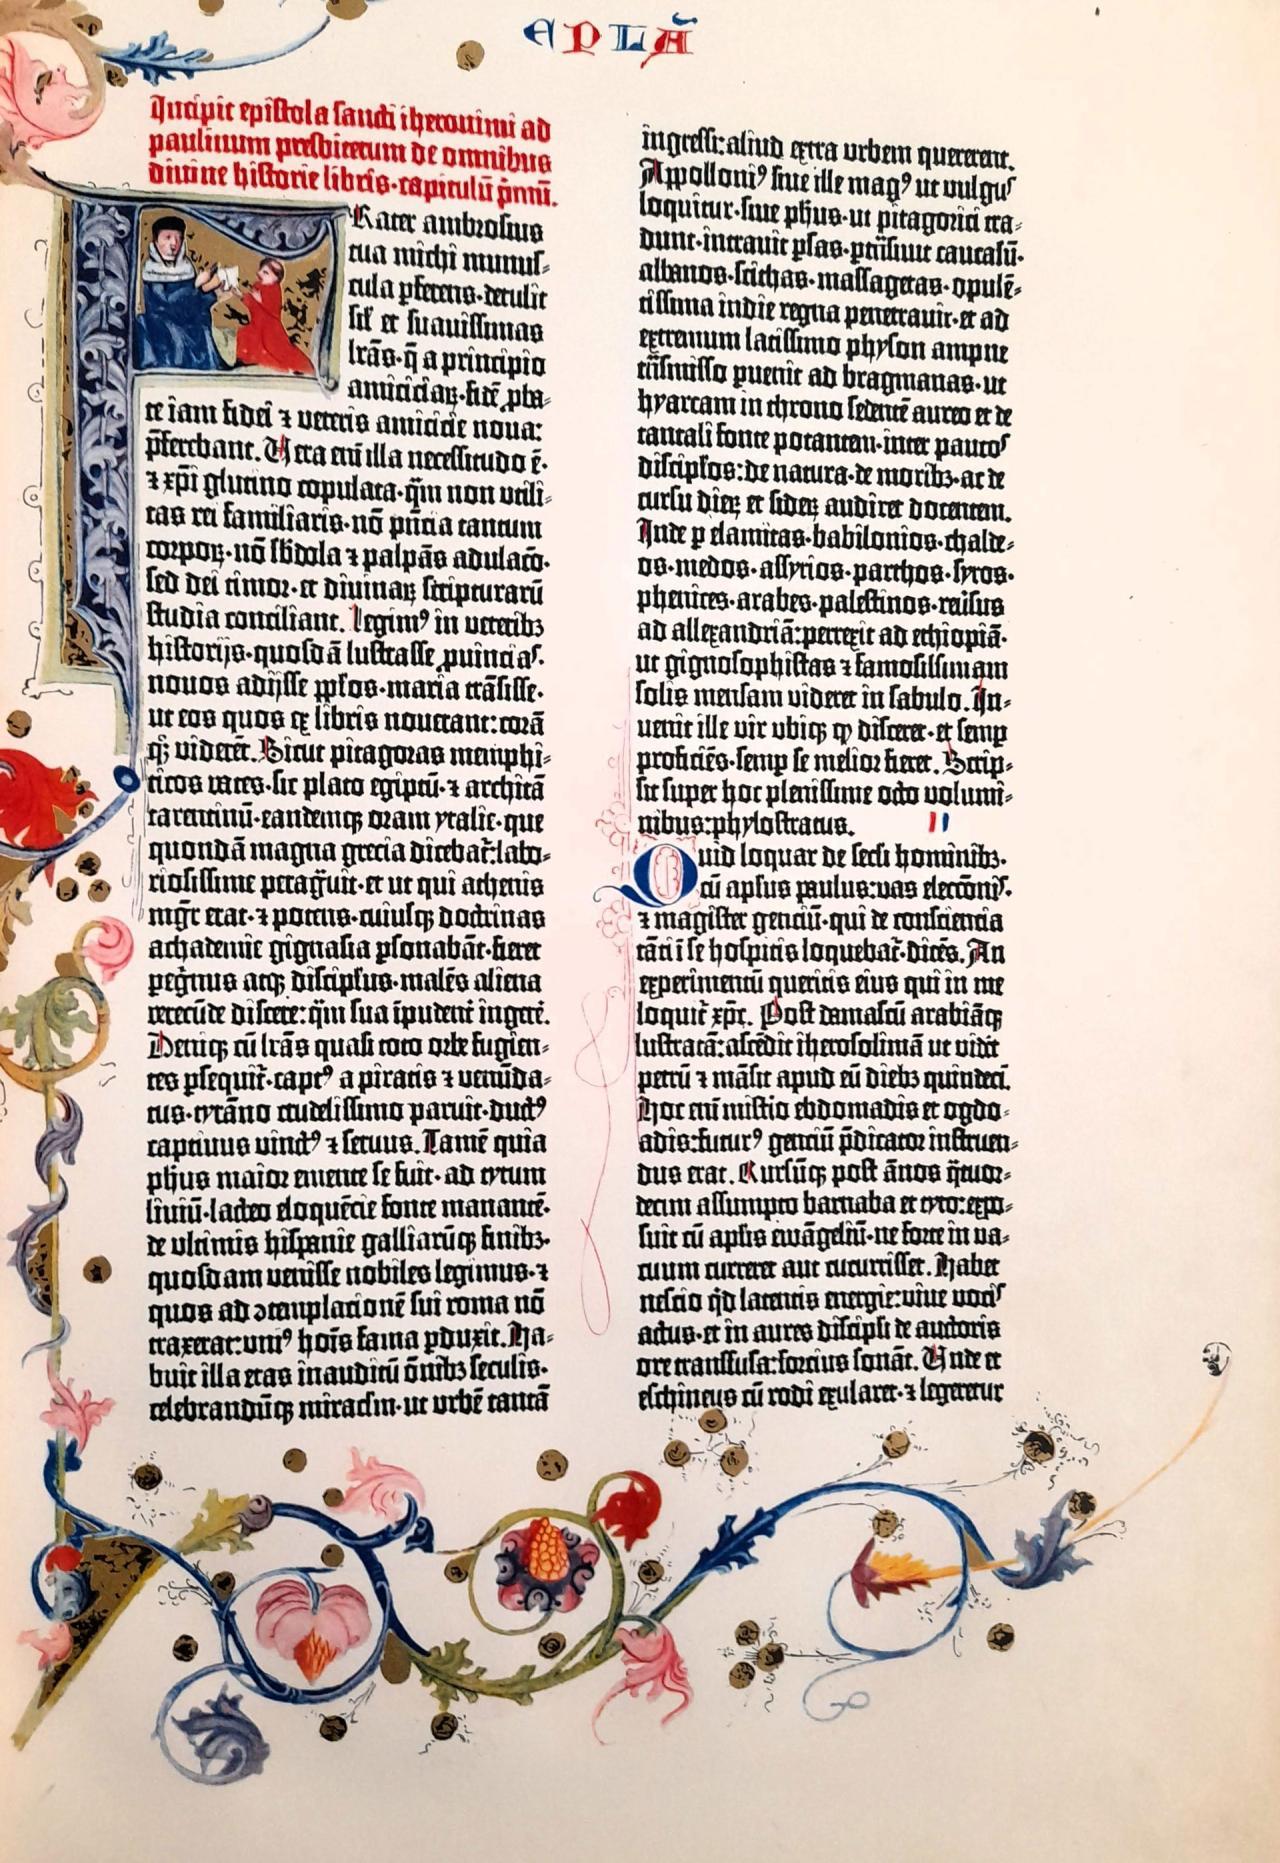 EPLĀ
Incipit epistola sancti iheronimi ad
paulinum presbiterum de omnibus
divine historie libris·capitulū p̄mū.
Frater ambrosius
tua michi munus-
cula ꝑferens·detulit
sil̄ et suavissimas
lr̄as·q̄ a principio
amiciciaꝝ·fidē ꝓba-
te iam fidei ⁊ veteris amicicie noua:
p̄ferebant. Vera em̄ illa necessitudo ē·
⁊ xp̄i glutino copulata·q̄m non utili-
tas rei familiaris·nō p̄ncia tantum
corpoꝝ·nō sb̄dola ⁊ palpās adulacō·
sed dei timor·et diuinaꝝ scripturarū
studia conciliant. Legimꝰ in veteribꝫ
historijs·quosdā lustrasse ꝓuincias·
nouos adijsse ppl̄os·maria trāsisse·
ut eos quos ex libris nouerant:corā
qꝫ viderēt. Sicut pitagoras memphi-
ticos vates·sic plato egiptū·⁊ architā
tarentinū·eandemqꝫ oram ytalie·que
quondā magna grecia dicebat̄:labo-
riosissime peragͣuit·et ut qui athenis
mgr̄ erat·⁊ potens·cuiusqꝫ doctrinas
achademie gignasia ꝑsonabāt·fieret
peg̓nus atqꝫ discipl̓us·malēs aliena
verecūde discere:q̄m sua īpudent̓ ingere̓.
Deniqꝫ cū lr̄as quasi toto orbe fugien-
tes ꝑsequit̄·captꝰ a piratis ⁊ venūda-
tus·tyrāno crudelissimo paruit·ductꝰ
captiuus vinctꝰ ⁊ seruus. Tamē quia
ph̄us maior emente se fuit·ad tytum
liuiū·lacteo eloquēcie fonte manantē·
de vltimis hispanie galliarūqꝫ finibꝫ·
quosdam venisse nobiles legimus·⁊
quos ad ↄtemplacionē sui roma nō
traxerat:vniꝰ hoīs fama ꝑduxit. Ha-
buit illa etas inauditū ōnibꝫ seculis·
celebrandūqꝫ miraclm̄·ut urbē tantā
ingressi:aliud extra urbem quererent.
Apolloniꝰ siue ille magꝰ ut vulgus
loquitur·siue ph̄us·ut pitagorici tra-
dunt·intrauit ꝑsas·ꝑtn̄siuit caucasū·
albanos·scithas·massagetas·opulē-
tissima indie regna penetrauit·et ad
extremum latissimo physon ampne
trn̄smisso ꝑuenit ad bragmanas·ut
hyarcam in throno sedentē aureo et de
tantali fonte potantem·inter paucos
discipl̓os:de natura·de moribꝫ·ac de
cursu dieꝝ et sideꝝ audiret docentem.
Inde ꝑ elamitas·babilonios·chalde-
os·medos·assyrios·parthos·syros·
phenices·arabes·palestinos·reusus
ad allexandriā:perrexit ad ethiopiā·
ut gignosophistas ⁊ famosissimam
solis mensam videret in sabulo. In-
uenit ille vir vbiqꝫ qꝫ disceret·et semꝑ
proficiēs·semꝑ se melior fieret. Scrip-
sit super hoc plenissime octo volumi-
nibus:phylostratus. II
Quid loquar de secli hominibꝫ·
cū apl̓us paulus:vas eleccōnis·
⁊ magister genciū·qui de consciencia
tāti ī se hospitis loquebat̄·dicēs. An
experimentū queritis eius qui in me
loquit̄ xpc̄. Post damascū arabiāqꝫ
lustratā:ascēdit iherosolimā ut vidit
petrū ⁊ māsit apud eū diebꝫ quindeci.
Hoc em̄ mistio ebdomadis et ogdo-
adis:futurꝰ genciū p̄dicator instruen-
dus erat. Rursūqꝫ post ānos q̄tuor-
decim assumpto barnaba et tyto:expo-
suit cū apl̓is ewāgeliū·ne forte in va-
cuum curreret aut cucurrisset. Habet
nescio qͥd latentis energie:viue vocis
actus·et in aures discipl̓i de auctoris
ore transfusa:forcius sonāt. Vnde et
eschineus cū rodi exularet·⁊ legeretur